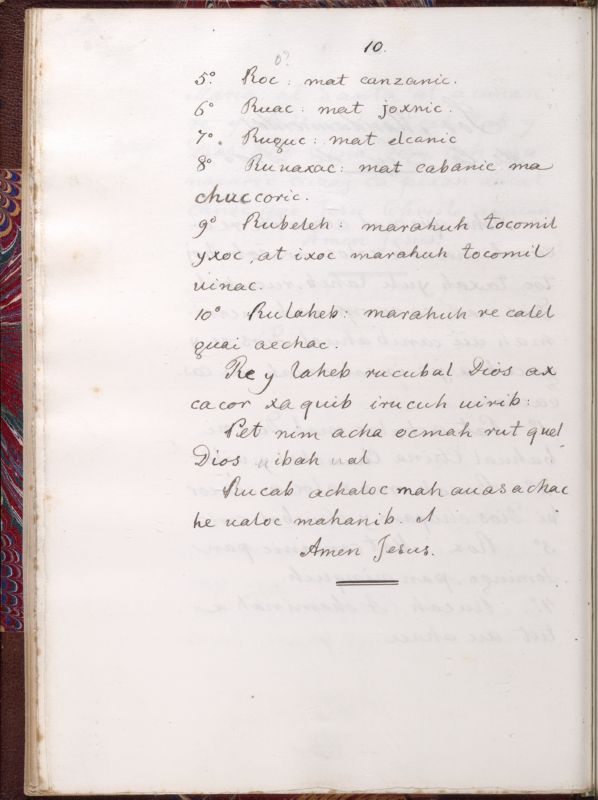 10.
o?
5º Roc: mat canzanic.
6º Ruac: mat joxnic.
7º. Ruguc: mat elcanic
8º Ruuaxac: mat cabanic ma
chuccoric.
9º Rubeleh: marahuh tocomil
yxoc, at ixoc marahuh tocomil
uinac.
10º Rulaheb: marahuh re calel
guai aechac.
Re y laheb rucubal Dios ax
cacor xa quib irucuh uirib:
Pet nim acha ocmah rut quel
Dios ibah ual
Rucab achaloc mah auas achac
he ualoc mahanib.
Amen Jesus.